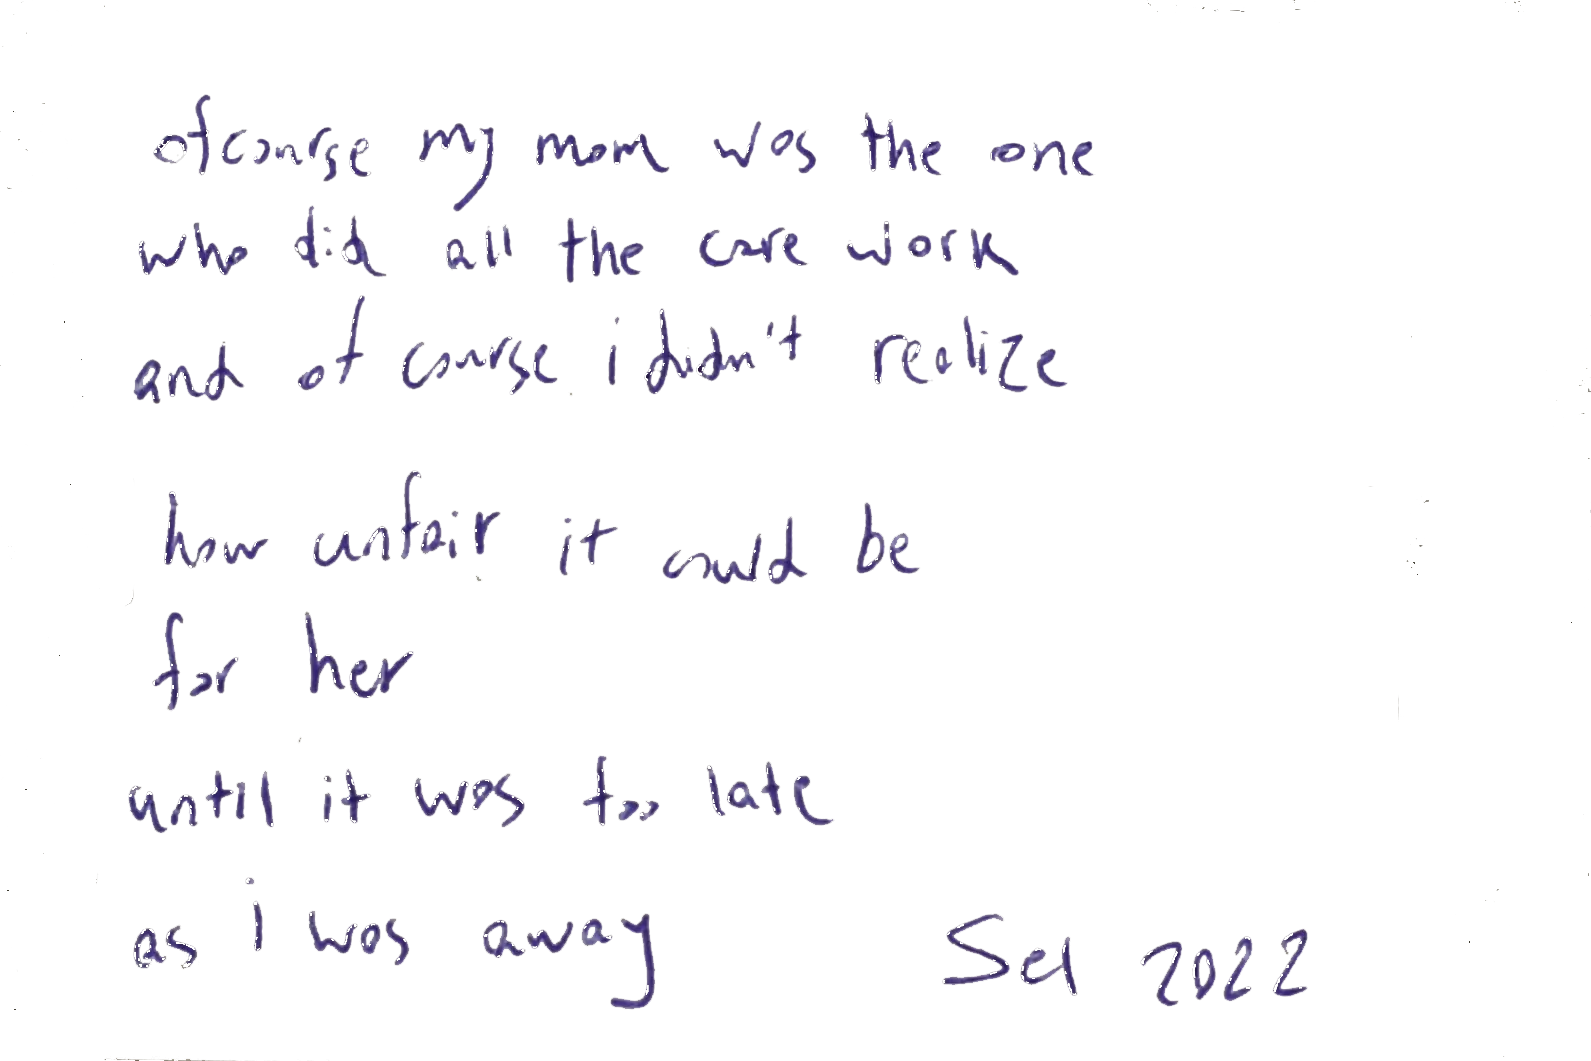 ofcourse my mom was the one
who did all the care work
and of course i didn't realize
how unfair it could be
for her
until it was too late
as i was away
Sel 2022